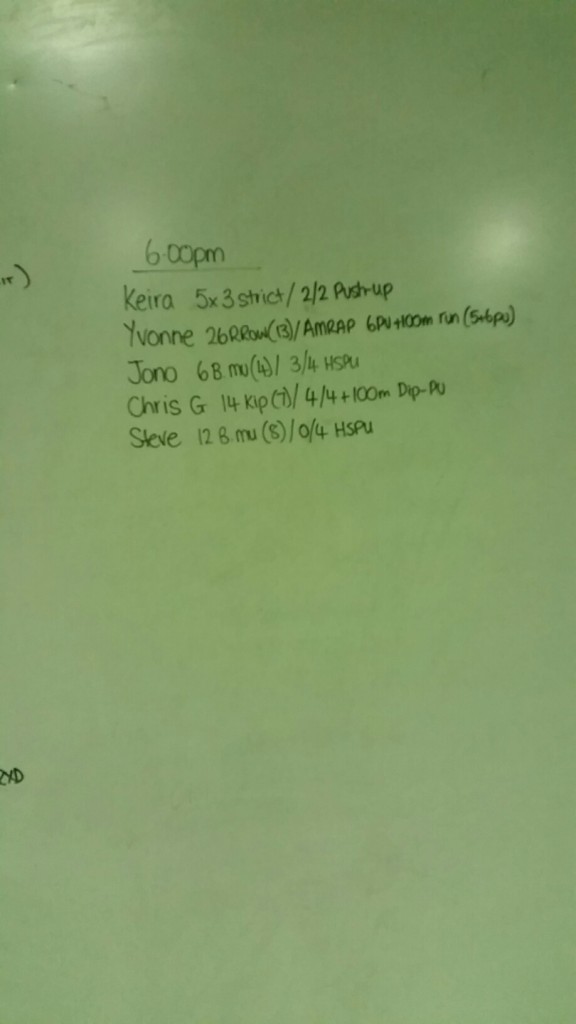 6.00pm
Keira 5x3 strict / 2/2 Push-up
Yvonne 26RRow(13)/AMRAP 6PU+100m run (5+6pu)
Jono 6B.mu(4)/ 3/4 HSPU
Chris G 14 Kip(7)/ 4/4+100m Dip-PU
Steve 12 B.mu (8)/0/4 HSPU
RXD